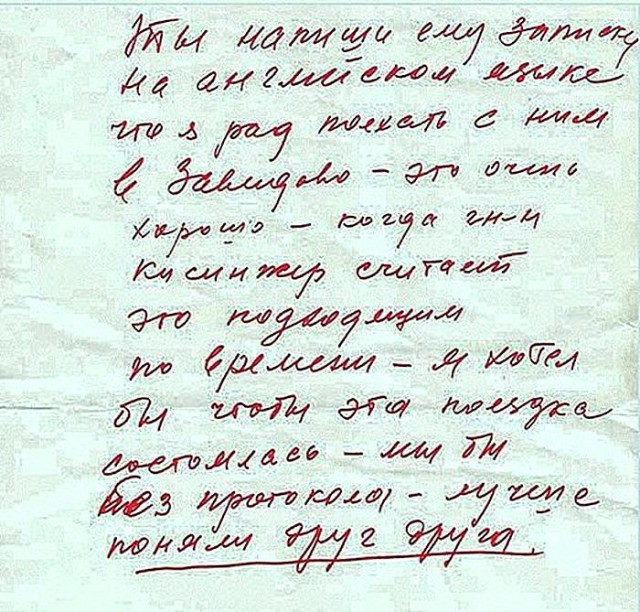 Ты напиши ему записку
на английском языке
что я рад поехать с ним
в Завидово – это очень
хорошо – когда гн-н
Кисинжер считает
это подходящим
по времени – я хотел
бы чтобы эта поездка
состоялась – мы бы
без протокола – лучше
поняли друг друга.